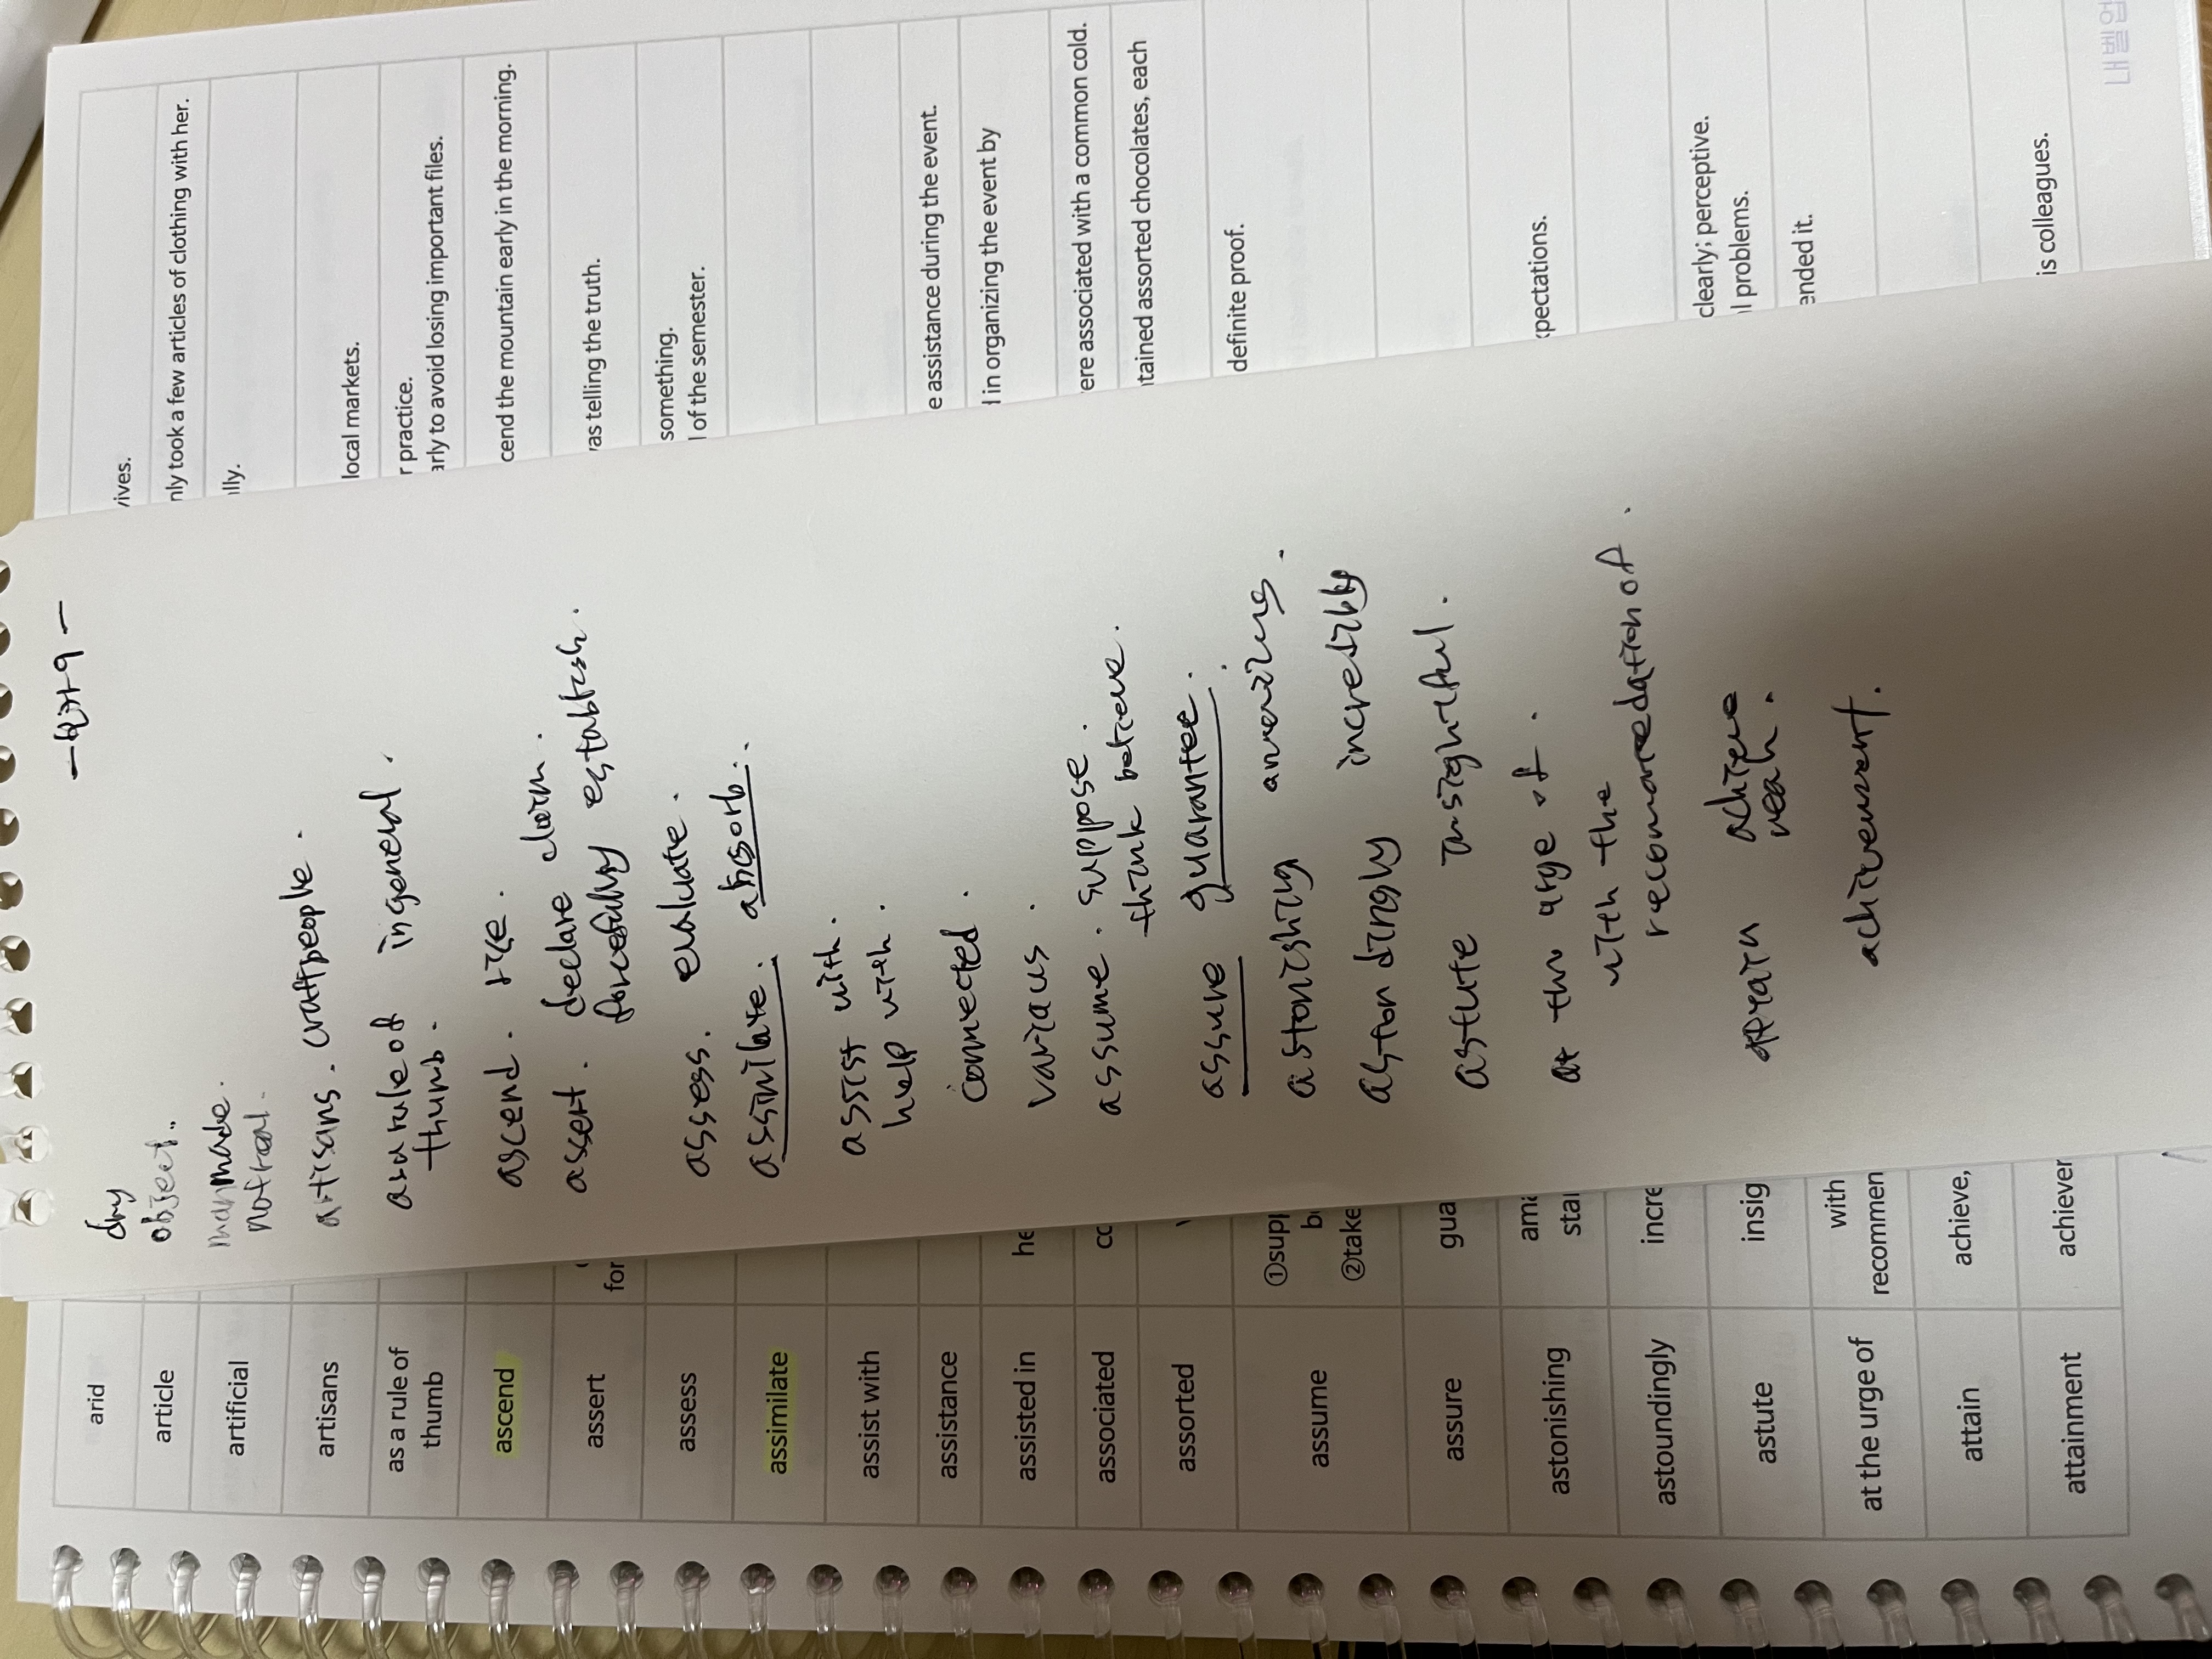 arid
article
artificial
artisans
as a rule of
thumb
ascend
assert
assess
assimilate
assist with
assistance
assisted in
associated
assorted
assume
assure
astonishing
astoundingly
astute
at the urge of
attain
attainment
for
he
co
①supp
b
②take
gua
ama
sta
incre
insig
with
recommen
achieve,
achiever
dry
object..
manmade.
not real.
artisans. craftpeople.
as a rule of in general.
thumb.
ascend. rise.
assert. declare claim.
forcefully establish.
assess. evaluate.
assimilate. absorb.
assist with.
help with.
connected.
various.
assume. suppose.
think believe.
assure guarantee.
astonishing amazing.
astondingly incredibly
astute insightful.
at the urge of.
with the
recomendation of.
achieve
reach.
achivement.
vives.
nly took a few articles of clothing with her.
lly.
local markets.
r practice.
arly to avoid losing important files.
cend the mountain early in the morning.
vas telling the truth.
something.
l of the semester.
e assistance during the event.
d in organizing the event by
ere associated with a common cold.
tained assorted chocolates, each
definite proof.
xpectations.
clearly; perceptive.
l problems.
ended it.
is colleagues.